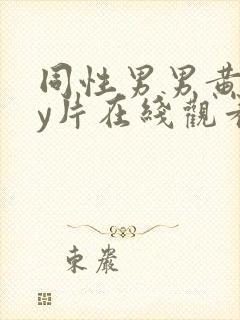 同性男男黄
y片在綫觀看
東巖